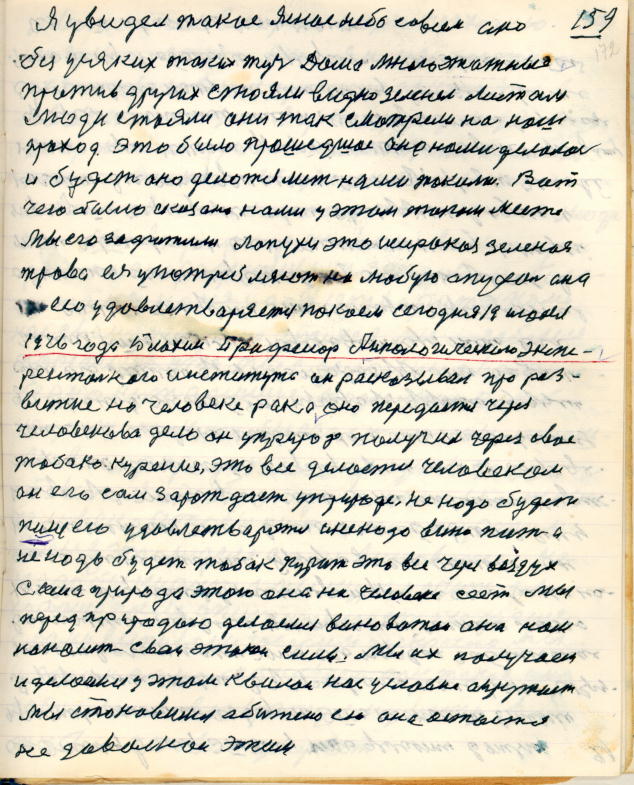 Я увидел такое Ясное небо совсем оно 159
172
без усяких таких туч Дома многоэтажные
против других стояли видно зеленея листом
Люди стояли они так смотрели на наш
приход. Это было прошедшое оно нами делалос
и будет оно делотся нами покаме. Вот
чего было сказано нами у этом таком месте
Мы его захфатили лопухи это широкоя зеленоя
трова ея употребляют на любую опухол она
его удовлетваряет покоем сегодня 19 июля
1976 года Блохин Професор Онкологического экспе-
рентального института он расказывал про роз-
витие на человеке рака, оно передается через
человекова дело он у природе получил через свое
тобако. курение, это все делостся человеком
он его сам зарождает у природе, не нодо будет
пищею удовлетварятся и не нодо вино пит а
не нодо будет тобак курит это все через воздух
сама природа этого она на человеке сеет Мы
перед природою делаемся виноватои она нам
наносит свои этакои силы. Мы их получаем
и делаемся у этом
Мы становимся обижено ею она остается
не доволноя этим